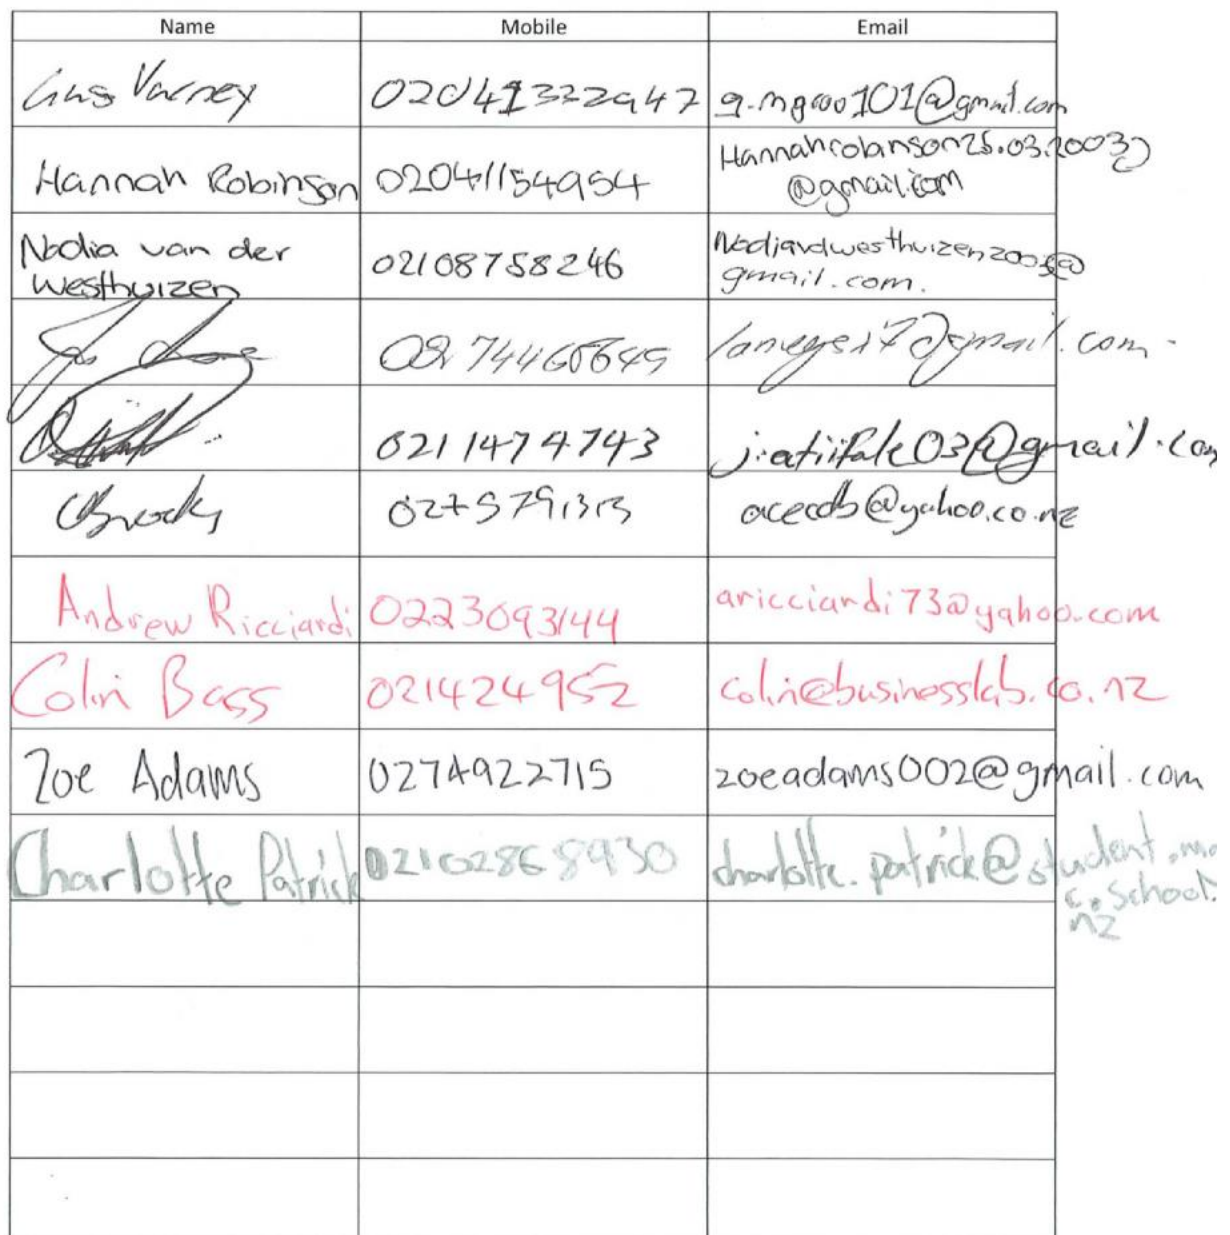 Name Mobile Email
Gus Varney 02041322947 g.mgroo101@gmail.com
Hannah Robinson 02041154954 Hannahrobinson25.03.2003
@gmail.com
Nadia van der 02108758246 Nadiavdwesthuizen2005@
Westhuizen gmail.com.
0211474743 j.atiifale03@gmail.com
CBrocks acecdb@yahoo.co.nz
Andrew Ricciardi 0223093144 aricciardi73@yahoo.com
Colin Bass 021424952 colin@businesslab.co.nz
Zoe Adams 0274922715 zoeadams002@gmail.com
Charlotte Patrick 02102868930 charlotte.patrick@student.ma
c.school.
nz